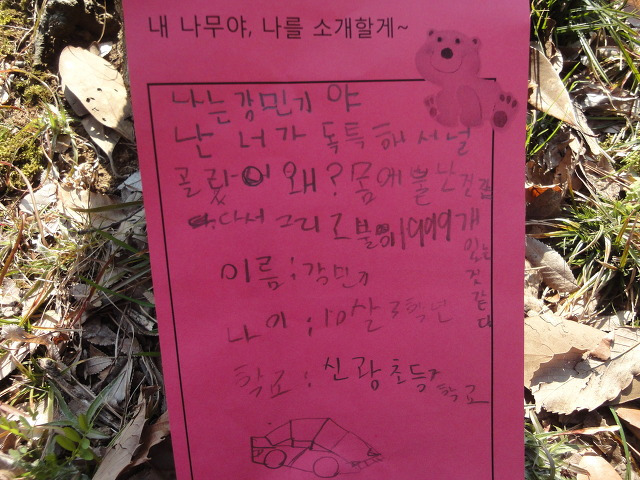 내 나무야, 나를 소개할게~
나는 강민기 야
난 너가 독특해서 널
골랐어 왜? 몸에 불난건 같
다서 그리고 불이 1999개
있는
것
같다
이름 : 강민기
나이 : 10살 3학년
학교 : 신광초등
학교